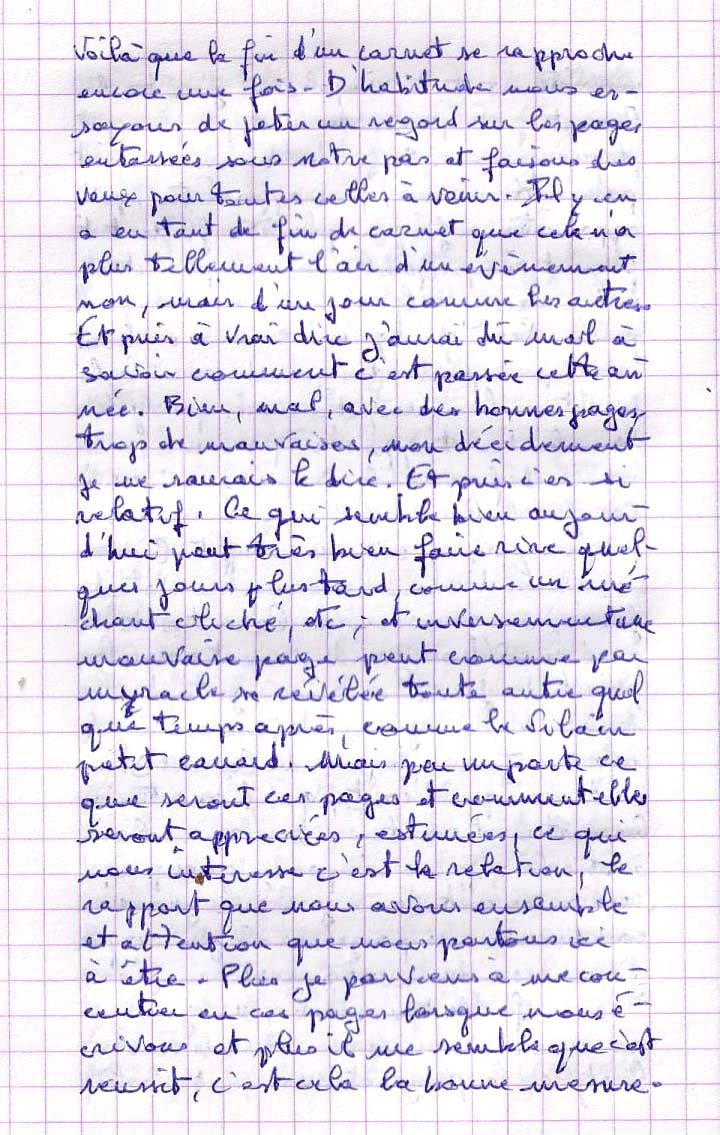 Voilà que la fin d'un carnet se rapproche
encore une fois - D'habitude nous es-
sayons de jeter un regard sur les pages
entassées sous notre pas et faisons des
vœux pour toutes celles à venir. Il y en
a eu tant de fin de carnet que cela n'a
plus tellement l'air d'un évènement
non, mais d'un jour comme les autres.
Et puis à vrai dire j'aurai du mal à
savoir comment c'est passée cette an
née. Bien, mal, avec des bonnes pages,
trop de mauvaises, non décidement
je ne saurais le dire. Et puis c'es si
relatif. Ce qui semble bien aujour-
d'hui peut très bien faire rire quel-
ques jours plus tard, comme un mé
chant cliché, etc, et inversement une
mauvaise page peut comme par
myracle se révélée toute autre quel
que temps après, comme le vilain
petit canard. Mais peu importe ce
que seront ces pages et comment elles
seront appreciées, estimées, ce qui
nous intéresse c'est la relation, le
rapport que nous avons ensemble
et attention que nous portons ici
à être. Plus je parviens à me con-
centrer en ces pages lorsque nous é-
crivons et plus il me semble que c'est
reussit, c'est cela la bonne mesure.